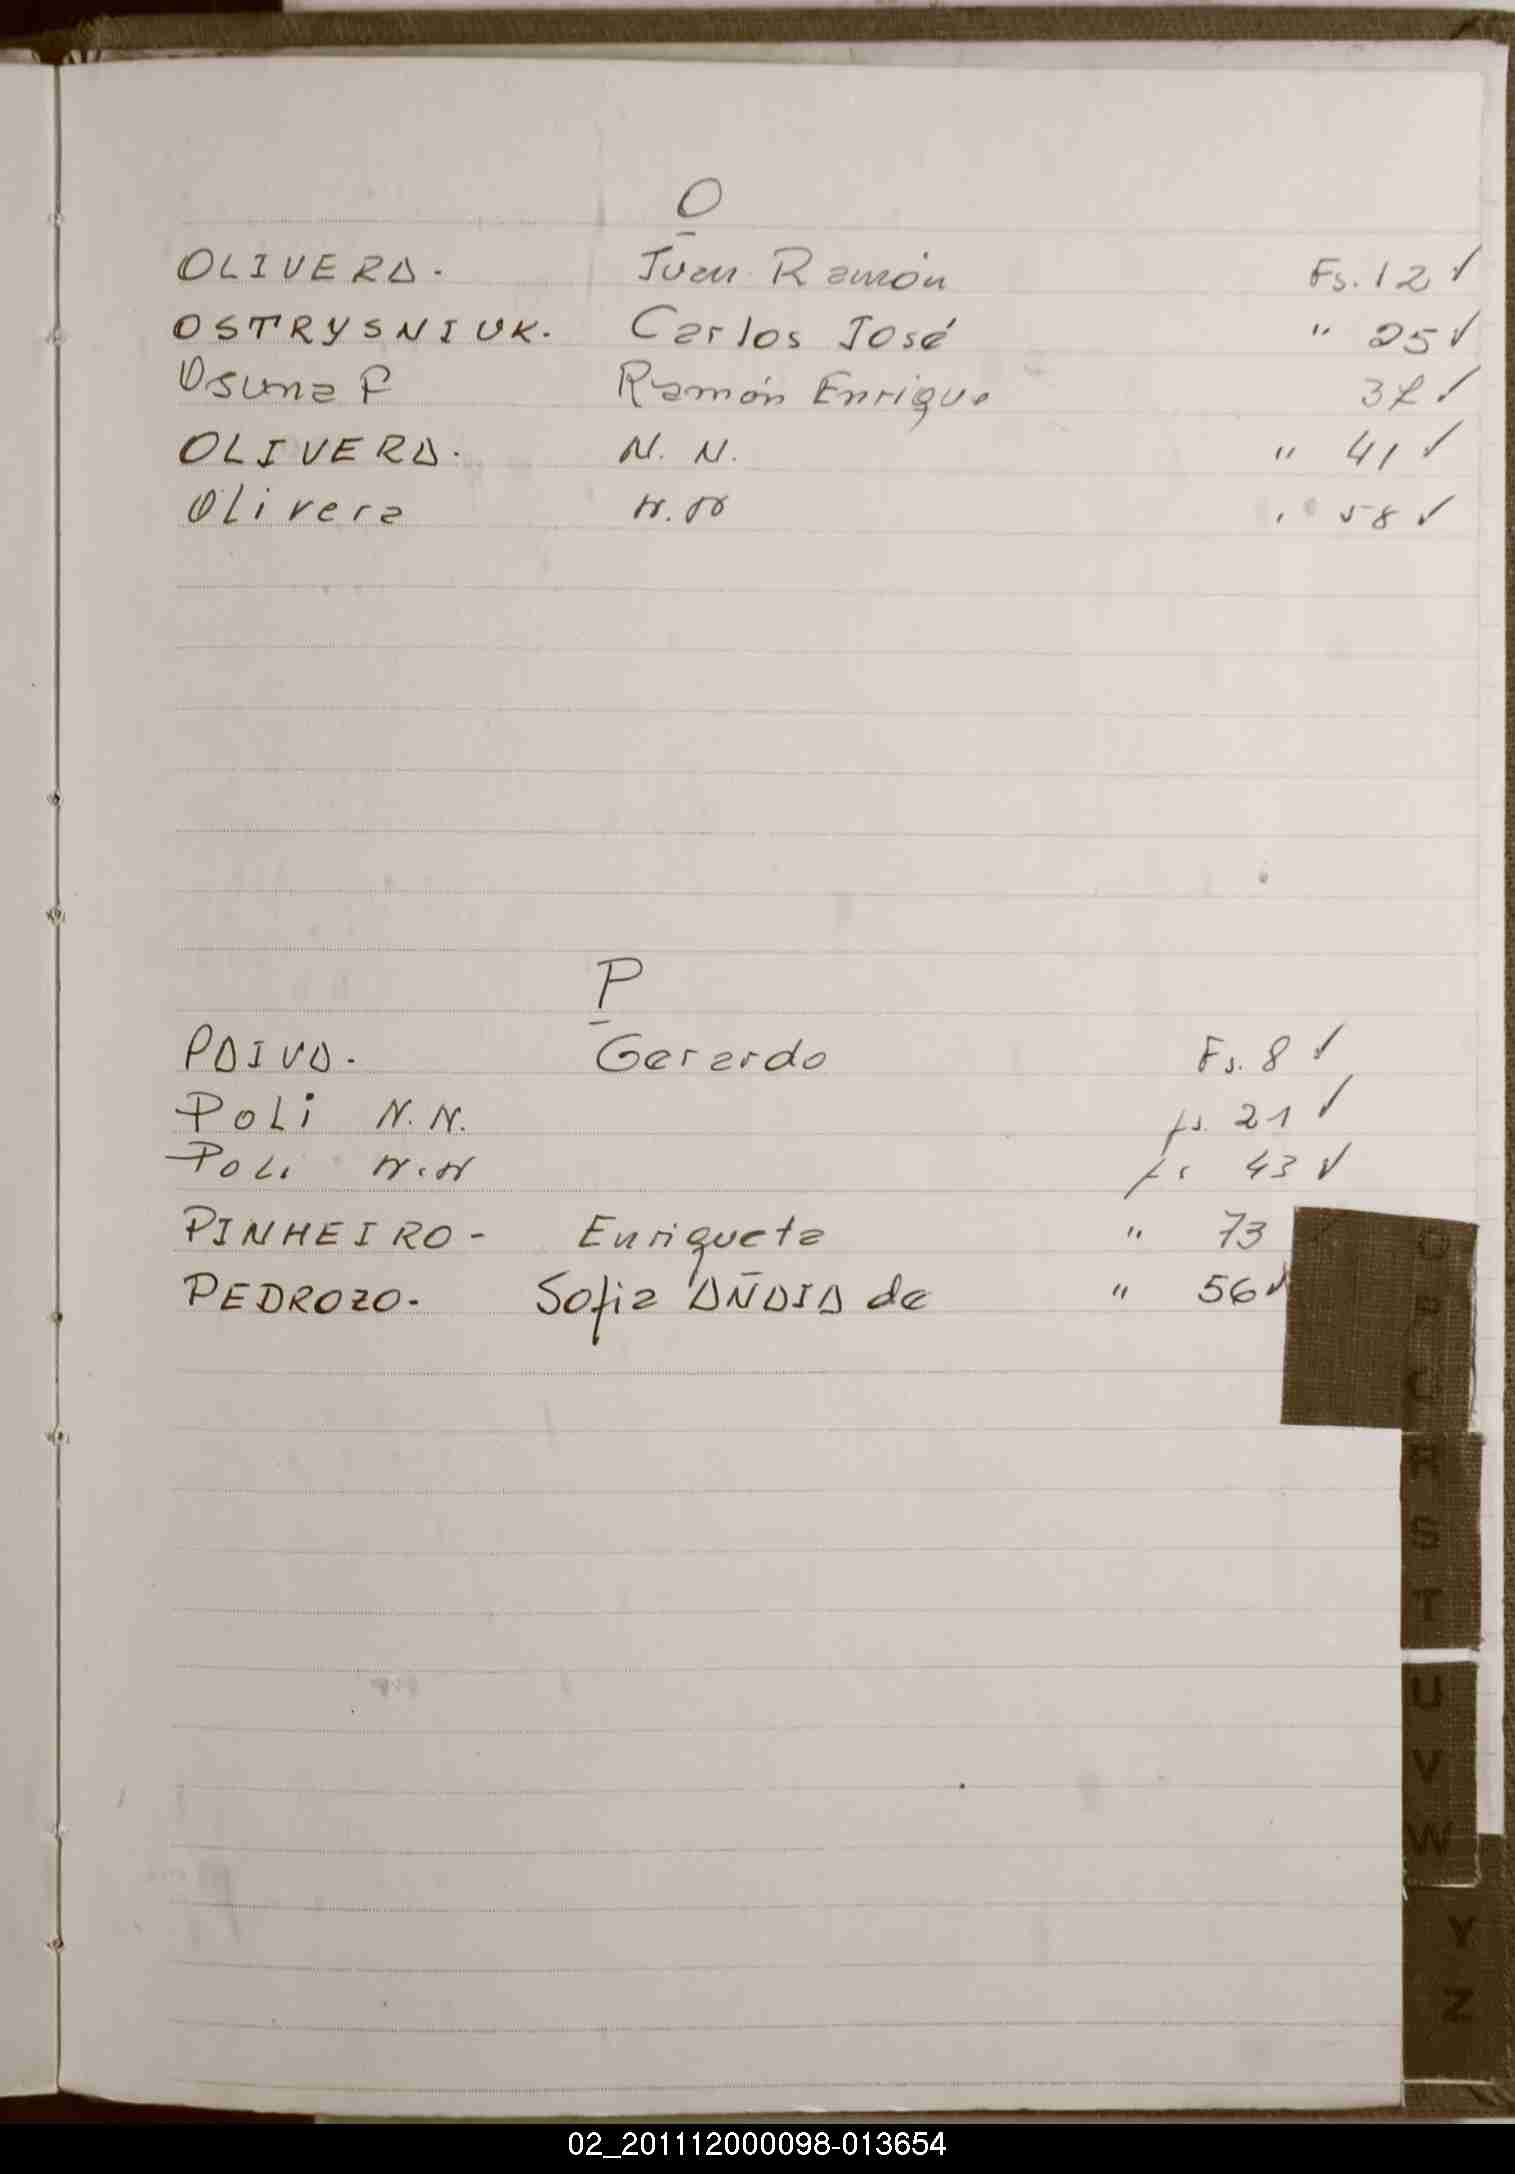 O
OLIVERA. Juan Ramón Fs. 12 ✓
OSTRYSNIUK. Carlos José " 25 ✓
Osuna F Ramón Enrique ✓
OLIVERA. N. N. " 41 ✓
Olivera N.N " 58 ✓
P
PAIVA. Gerardo Fs. 8 ✓
Poli N.N. fs. 21 ✓
Poli N.N fs 43 ✓
PINHEIRO - Enriqueta " 73
PEDROZO. Sofia AÑAIA de " 56 ✓
O
P
R
S
T
U
V
W
Y
Z
02_201112000098-013654